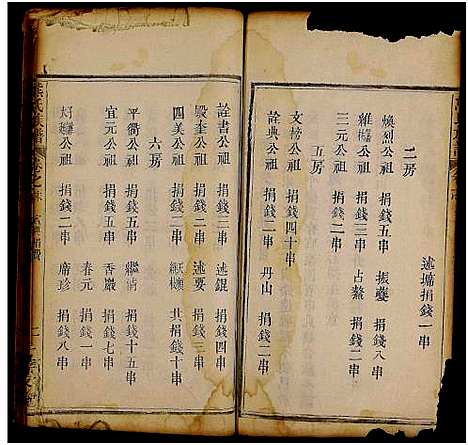 述墉捐錢一串
二房
煥烈公祖 捐錢五串 振夔 捐錢八串
雅樾公祖 捐錢三串 占鰲 捐錢二串
三元公祖 捐錢二串
五房
文榜公祖 捐錢四十串
詮典公祖 捐錢二串 丹山 捐錢二串
詮書公祖 捐錢二串 述錕 捐錢四串
毀奎公祖 捐錢二串 述要 捐錢三串
四美公祖 捐錢三串 共捐錢十二串
六房
平衢公祖 捐錢五串 繼清 捐錢十五串
宜元公祖 捐錢五串 香巖 捐錢七串
春元 捐錢一串
公祖 捐錢二串 席珍 捐錢八串